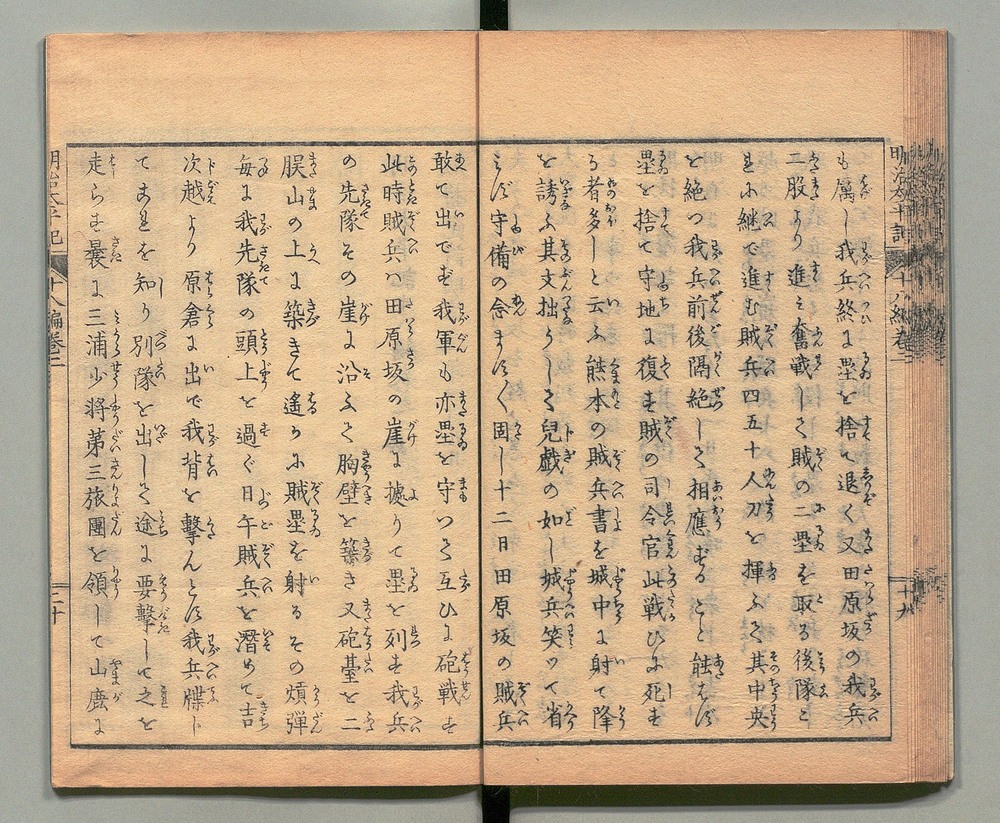 明治太平記 十八編卷二 十九
も厲し我兵終に塁を捨て退く又田原坂の我兵
二股より進ミ奮戦して賊の二塁を取る後隊之
れに継で進む賊兵四五十人刀を揮ふて其中央
を絶つ我兵前後隔絶して相應ずること能はず
塁を捨て守地に復す賊の司令官此戦ひに死す
る者多しと云ふ熊本の賊兵書を城中に射て降
を誘ふ其文拙くして兒戯の如し城兵笑つて省
ミず守備の念ますく固し十二日田原坂の賊兵
敢て出でず我軍も亦塁を守つて互ひに砲戦す
此時賊兵ハ田原坂の崖に據りて塁を列す我兵
の先隊その崖に沿ふて胸壁を築き又砲䑓を二
俣山の上に築きて遙かに賊塁を射るその煩弾
毎に我先隊の頭上を過ぐ日午賊兵を潜めて吉
次越より原倉に出で我背を撃んとす我兵牒し
てあれを知り別隊を出して途に要撃して之を
走らす曩に三浦少将第三旅團を領して山鹿に
明治太平記 十八編卷二 二十